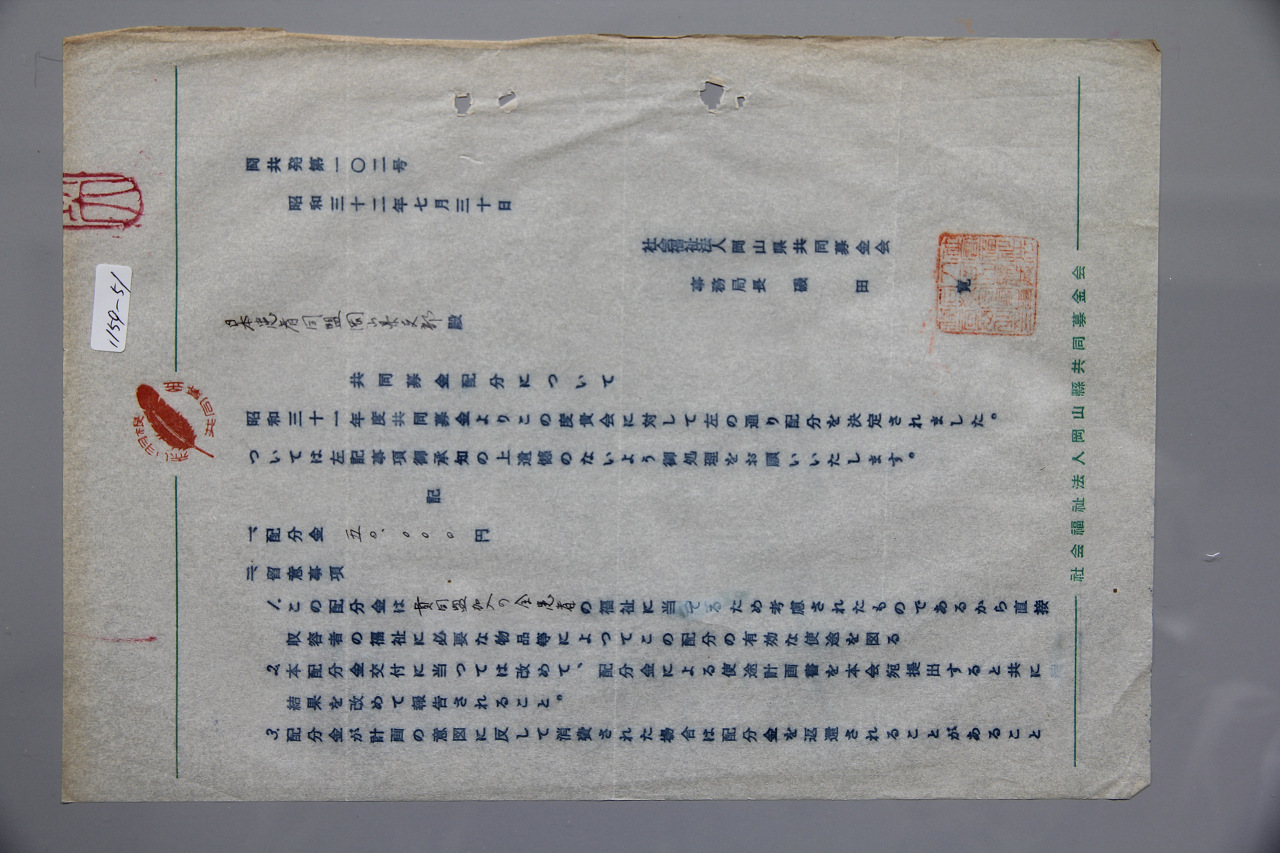 岡共発第一〇二号
昭和三十二年七月三十日
社会福祉法人岡山県共同募金会
事務局長 磯田 寛
日本患者同盟岡山県支部殿
共同募金配分について
昭和三十一年度共同募金よりこの度貴会に対して左の通り配分を決定されました。
ついては左記事項御承知の上遺憾のないよう御処理をお願いいたします。
記
一、配分金 五〇.〇〇〇円
二、留意事項
1.この配分金は貴同盟加入の全患者の福祉に当てるため考慮されたものであるから直接
収容者の福祉に必要な物品等によつてこの配分の有効な使途を図る
2.本配分金交付に当つては改めて、配分金による使途計画書を本会宛提出すると共に
結果を改めて報告されること。
3.配分金が計画の意図に反して消費された場合は配分金を返還されることがあること
社会福祉法人岡山縣共同募金会
共同募金
1150-51